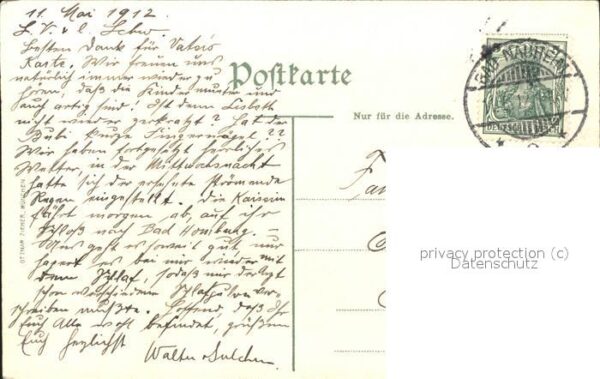 11. Mai 1912.
L. V. u. l. Schw.
Besten Dank für Vatis
Karte. Wir freuen uns
natürlich immer wieder zu
hören, daß die Kinder munter und
auch artig sind! Ist denn Lisbeth
nicht wieder zerkratzt? Hat der
Bubi kurze Fingernägel??
Wir haben fortgesetzt herrliches
Wetter, in der Mittwochnacht
hatte sich der ersehnte strömende
Regen eingestellt. Die Kaiserin
fährt morgen ab, auf ihr
Schloß nach Bad Homburg. –
Uns geht es soweit gut, nur
hapert es bei mir wieder mit
dem Schlaf, sodaß mir der Arzt
schon verschiedene Schlafpulver ver-
schreiben mußte. Hoffend, daß Ihr
Euch Alle wohl befindet, grüßen
Euch herzlichst
Walter
Postkarte
Nur für die Adresse.
BAD-NAUHEIM
OTTMAR ZIEHER, MÜNCHEN
privacy protection (c)
Datenschutz